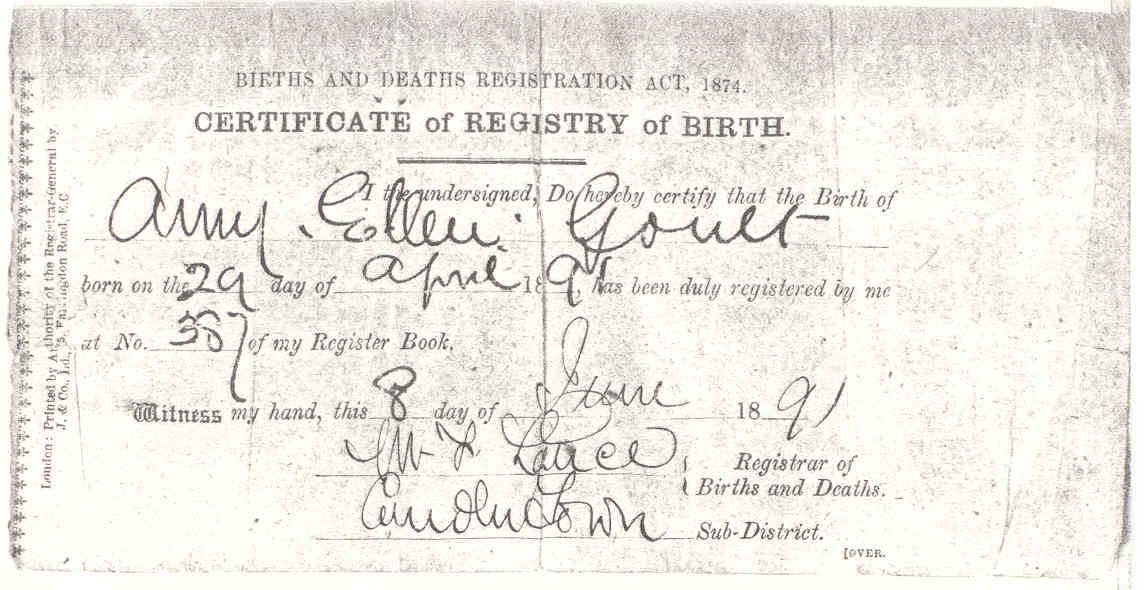 BIRTHS AND DEATHS REGISTRATION ACT, 1874.
CERTIFICATE of REGISTRY of BIRTH.
I the undersigned, Do hereby certify that the Birth of
Amy Ellen Goult
born on the 29 day of April 1891, has been duly registered by me
at No. 387 of my Register Book.
Witness my hand, this 8 day of June 1891
Registrar of
Births and Deaths.
Camden Town Sub-District.
[OVER.
London: Printed by Authority of the Registrar-General by
J. & Co., Ld., Farringdon Road, E.C